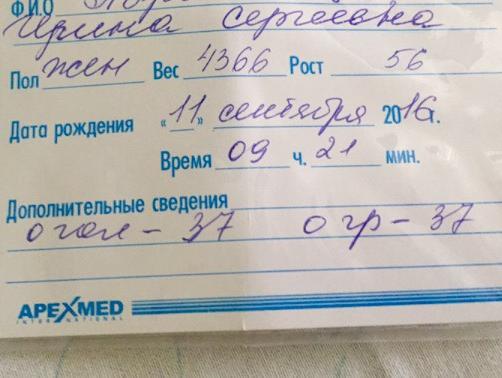 Ф.И.О
Ирина Сергеевна
Пол жен Вес 4366 Рост 56
Дата рождения «11» сентября 2016г.
Время 09 ч. 21 мин.
Дополнительные сведения
о гол - 37 о гр - 37
APEXMED
INTERNATIONAL